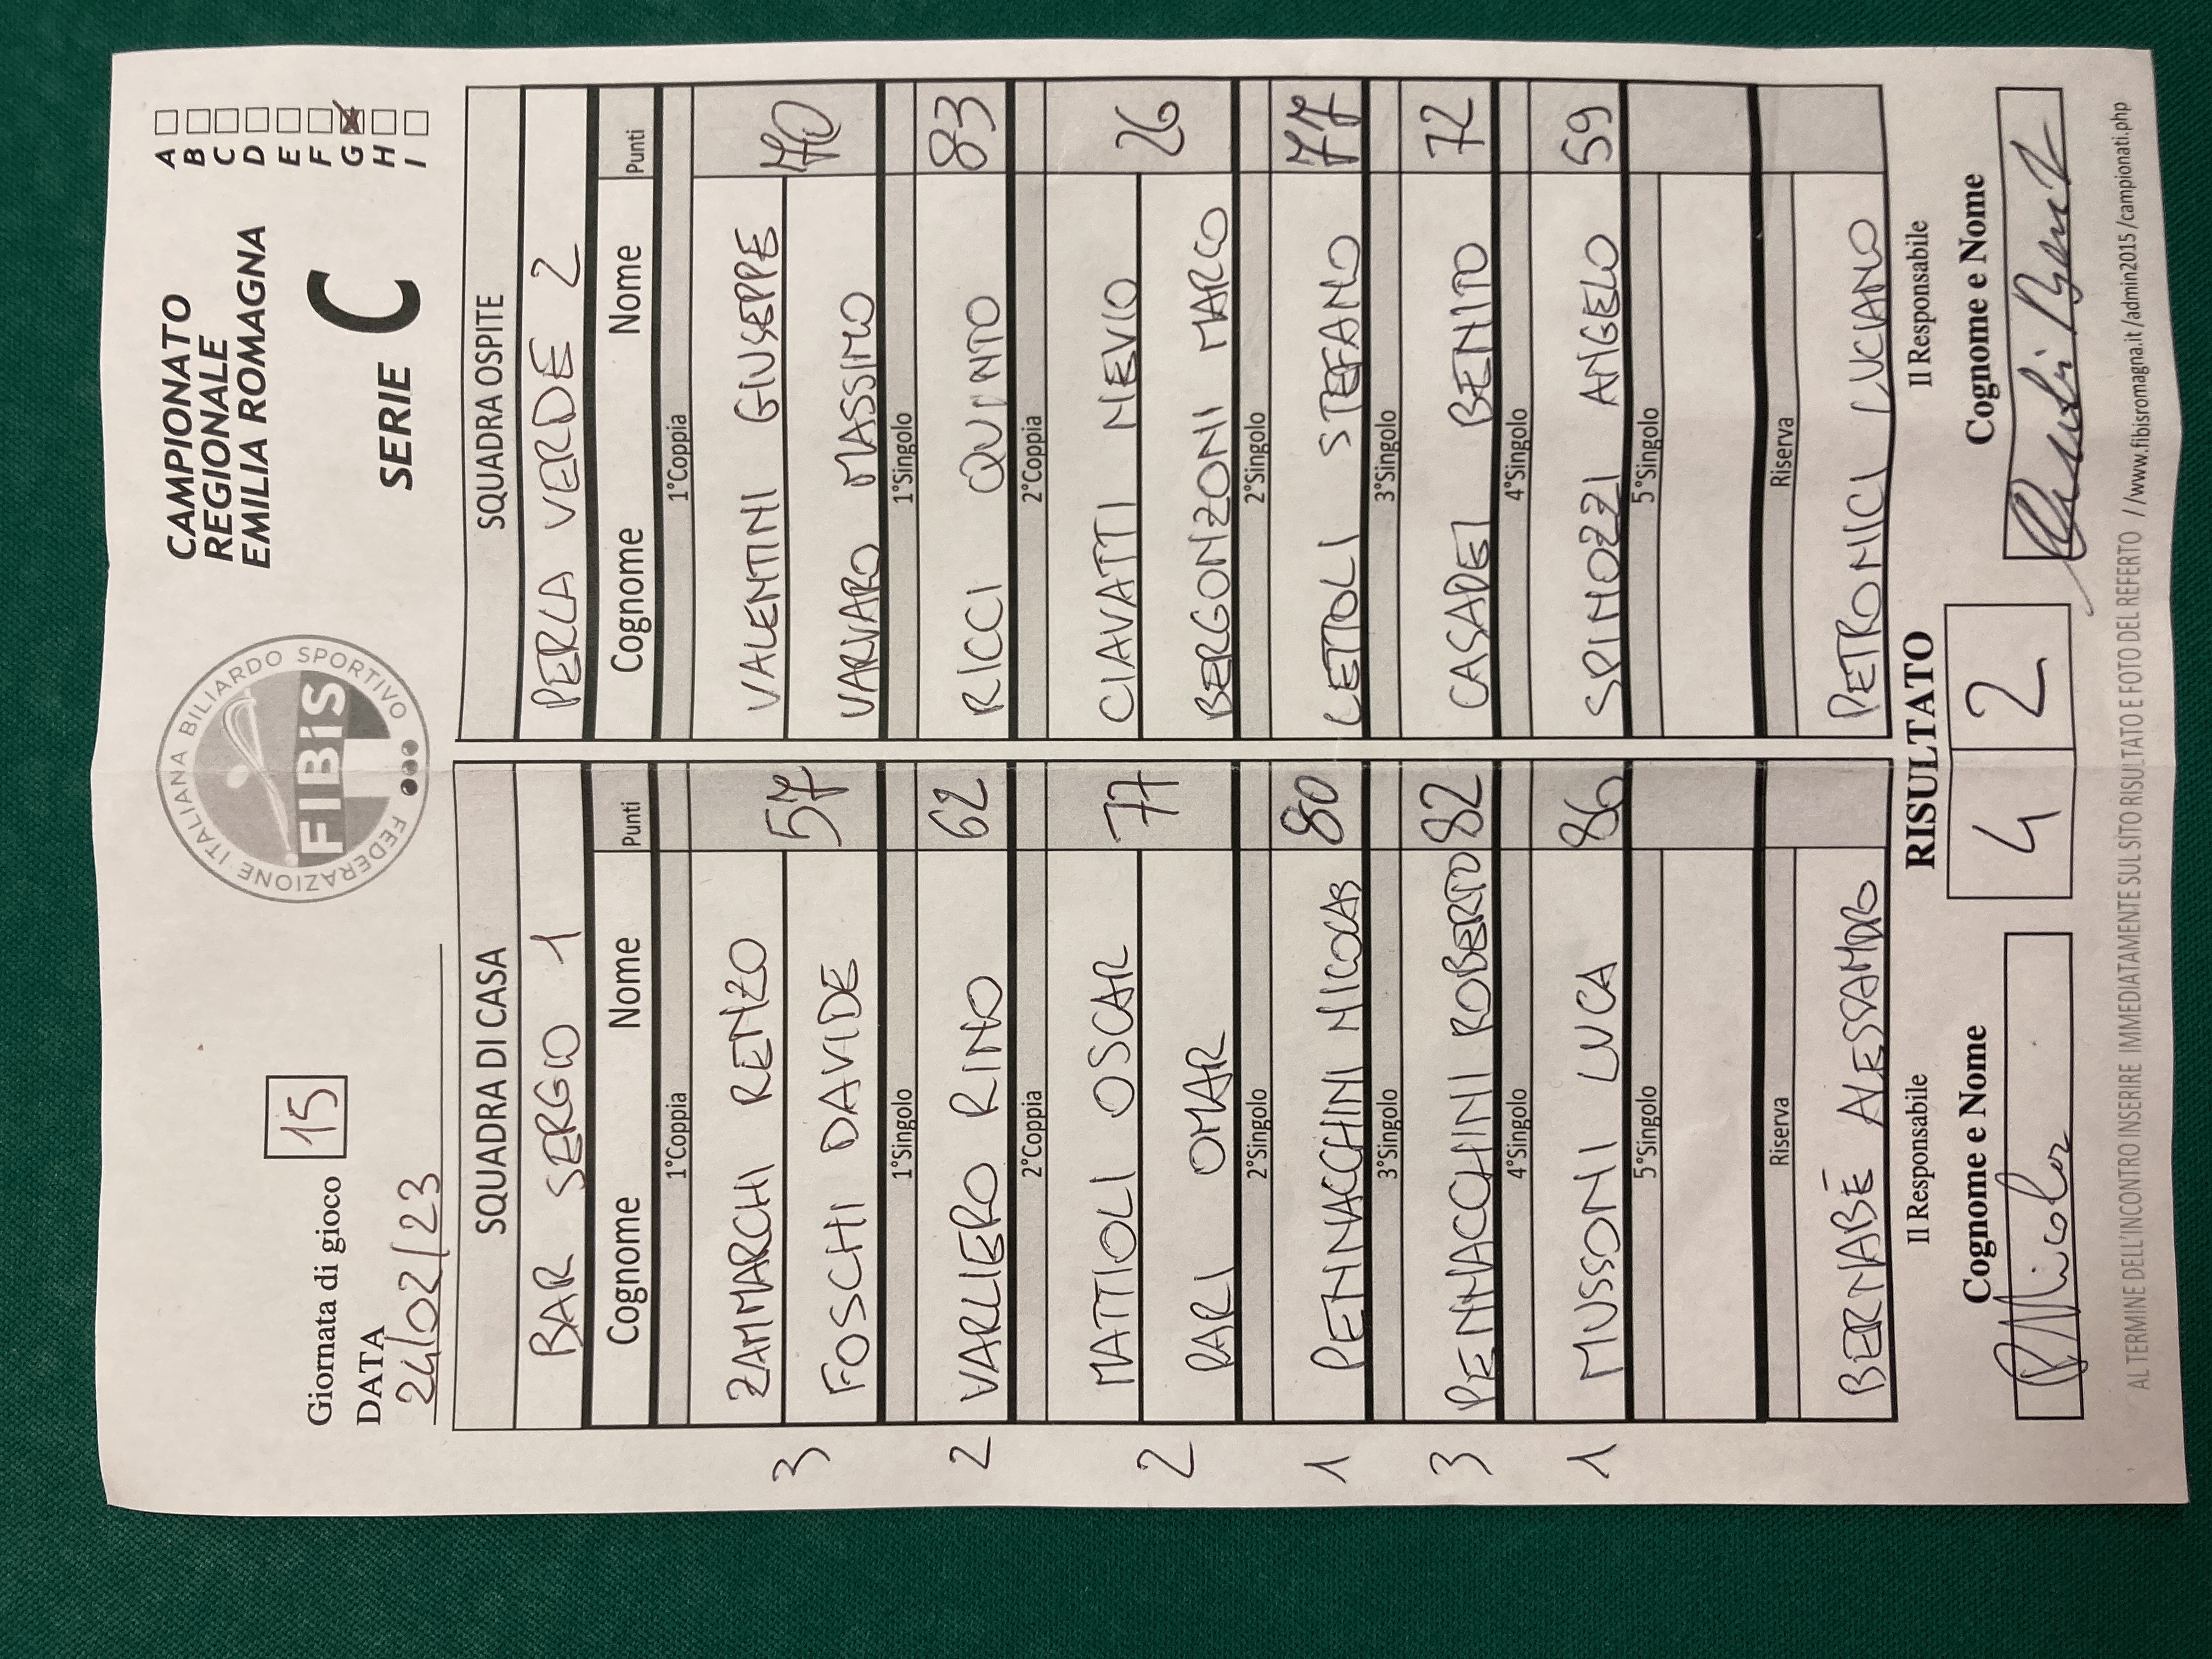 Giornata di gioco 15
DATA
24/02/23
FEDERAZIONE ITALIANA BILIARDO SPORTIVO
FIBiS
CAMPIONATO
REGIONALE
EMILIA ROMAGNA
SERIE C
A
B
C
D
E
F
G
H
I
SQUADRA DI CASA
BAR SERGIO 1
Cognome Nome Punti
1°Coppia
3 ZAMMARCHI RENZO
FOSCHI DAVIDE 57
1°Singolo
2 VARLIERO RINO 62
2°Coppia
MATTIOLI OSCAR 77
2 PARI OMAR
2°Singolo
1 PENNACCHINI NICOLAS 80
3°Singolo
3 PENNACCHINI ROBERTO 82
4°Singolo
1 MUSSONI LUCA 86
5°Singolo
Riserva
BERNABÈ ALESSANDRO
SQUADRA OSPITE
PERLA VERDE 2
Cognome Nome Punti
1°Coppia
VALENTINI GIUSEPPE 70
VARVARO MASSIMO
1°Singolo
RICCI QUINTO 83
2°Coppia
CIAVATTI NEVIO 26
BERGONZONI MARCO
2°Singolo
LETTOLI STEFANO 77
3°Singolo
CASADEI BENITO 72
4°Singolo
SPINOZZI ANGELO 59
5°Singolo
Riserva
PETRONICI LUCIANO
Il Responsabile RISULTATO Il Responsabile
Cognome e Nome 4 2 Cognome e Nome
AL TERMINE DELL'INCONTRO INSERIRE IMMEDIATAMENTE SUL SITO RISULTATO E FOTO DEL REFERTO //www.fibisromagna.it/admin2015/campionati.php